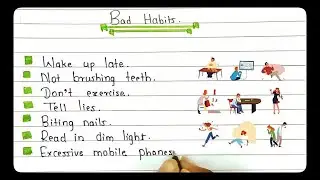 Bad Habits.
Wake up late.
Not brushing teeth.
Don't exercise.
Tell lies.
Biting nails.
Read in dim light.
Excessive mobile phones